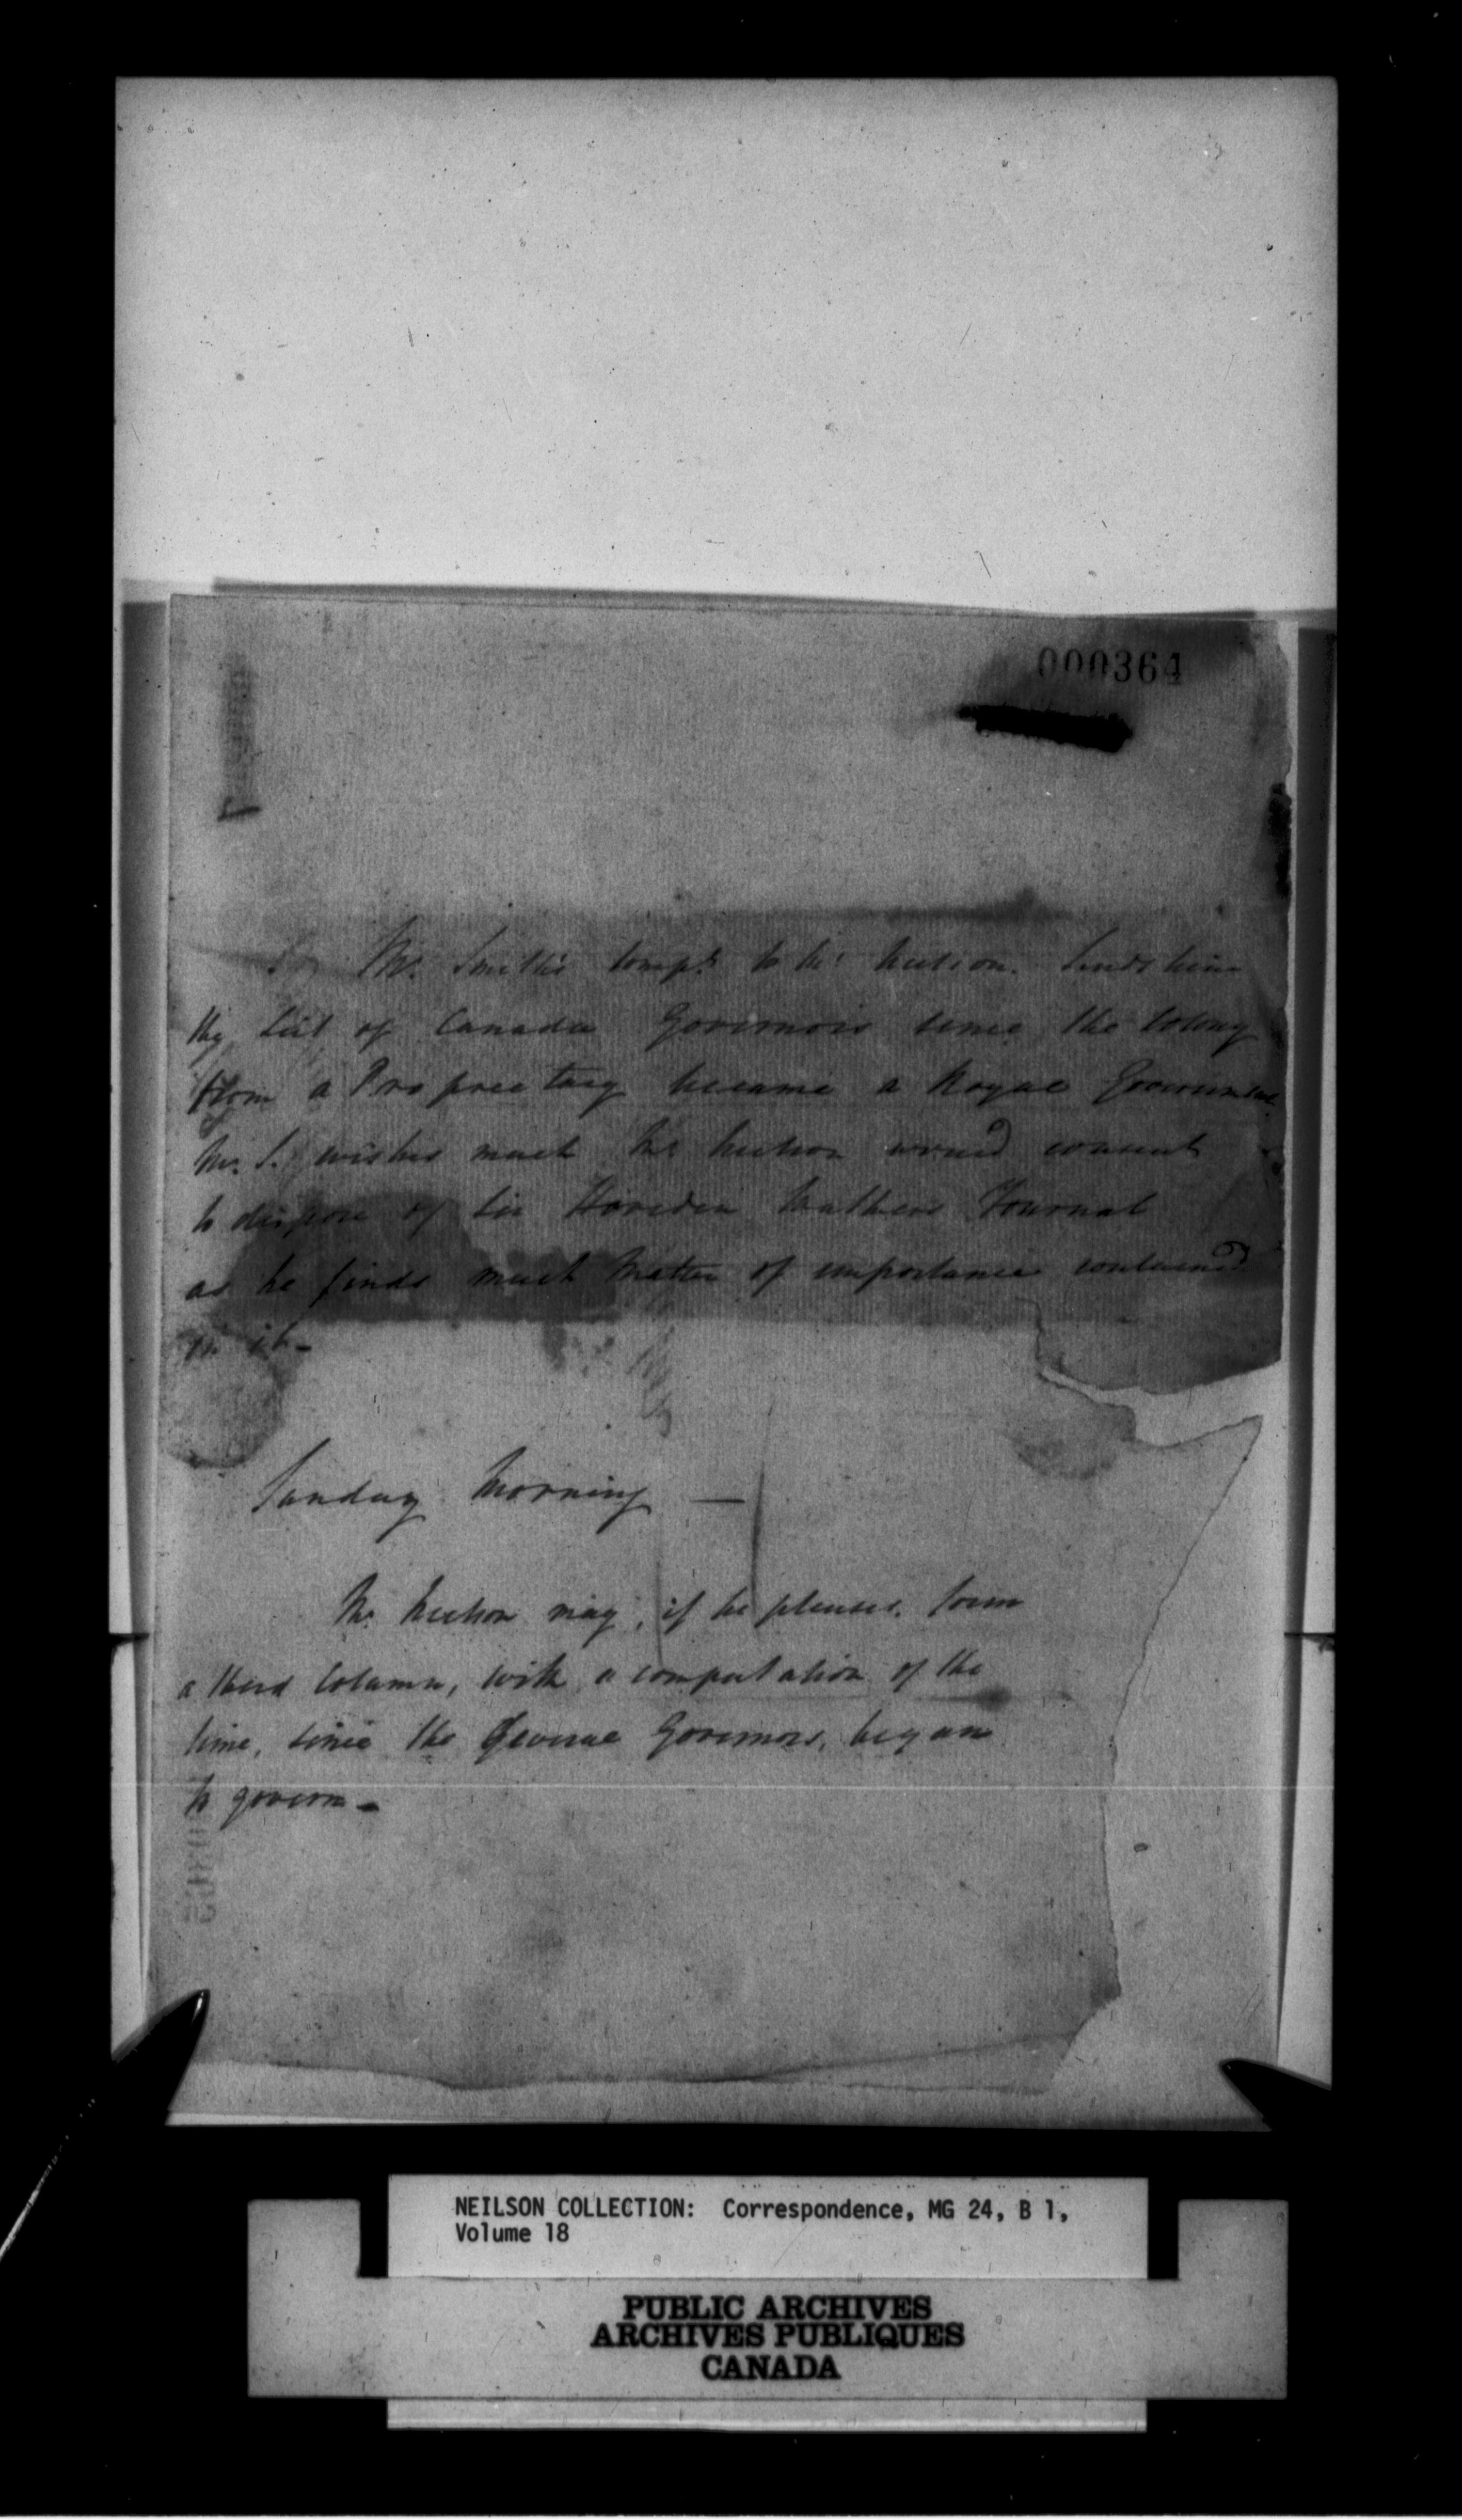 000364
Mr. Smith's Comp.ts to Mr. Neilson. Sends him
the List of Canada Governors since the Colony
from a Proprietary became a Royal Government
Mr. S. wishes much Mr Neilson would consent
to dispose of Sir Hoveden Walkers Journal
as he finds much matter of importance contained
in it –
Sunday Morning —
Mr. Neilson may, if he pleases, form
a third Column, with a computation of the
time, since the several Governors, began
to govern –
NEILSON COLLECTION: Correspondence, MG 24, B 1,
Volume 18
PUBLIC ARCHIVES
ARCHIVES PUBLIQUES
CANADA